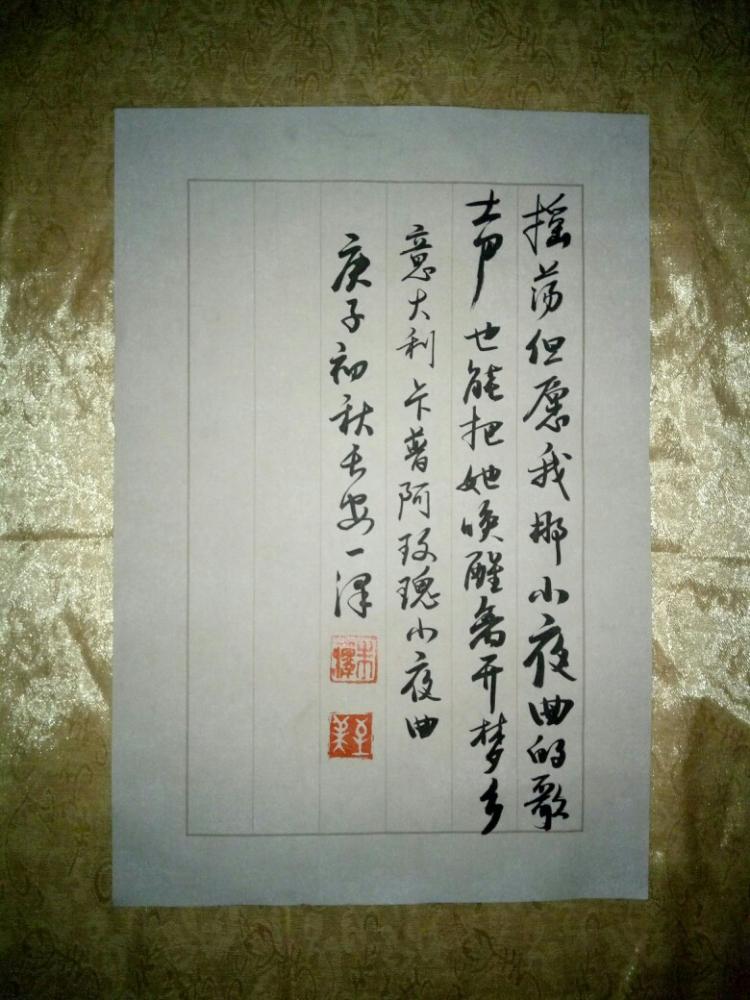 摇荡但愿我那小夜曲的歌
声也能把她唤醒离开梦乡
意大利卡普阿玫瑰小夜曲
庚子初秋长安一泽
朱泽
至美